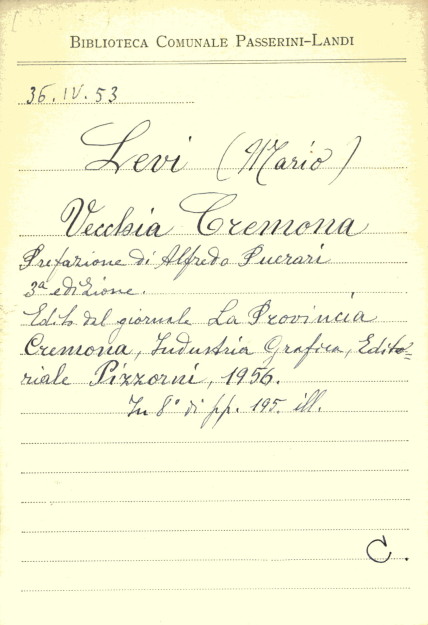 BIBLIOTECA COMUNALE PASSERINI-LANDI
36.IV.53
Levi (Mario)
Vecchia Cremona
Prefazione di Alfredo Puerari
3ª edizione.
Edito dal giornale La Provincia
Cremona, Industria Grafica, Edito=
riale Pizzorni, 1956.
In 8° di pp. 195. ill.
C.